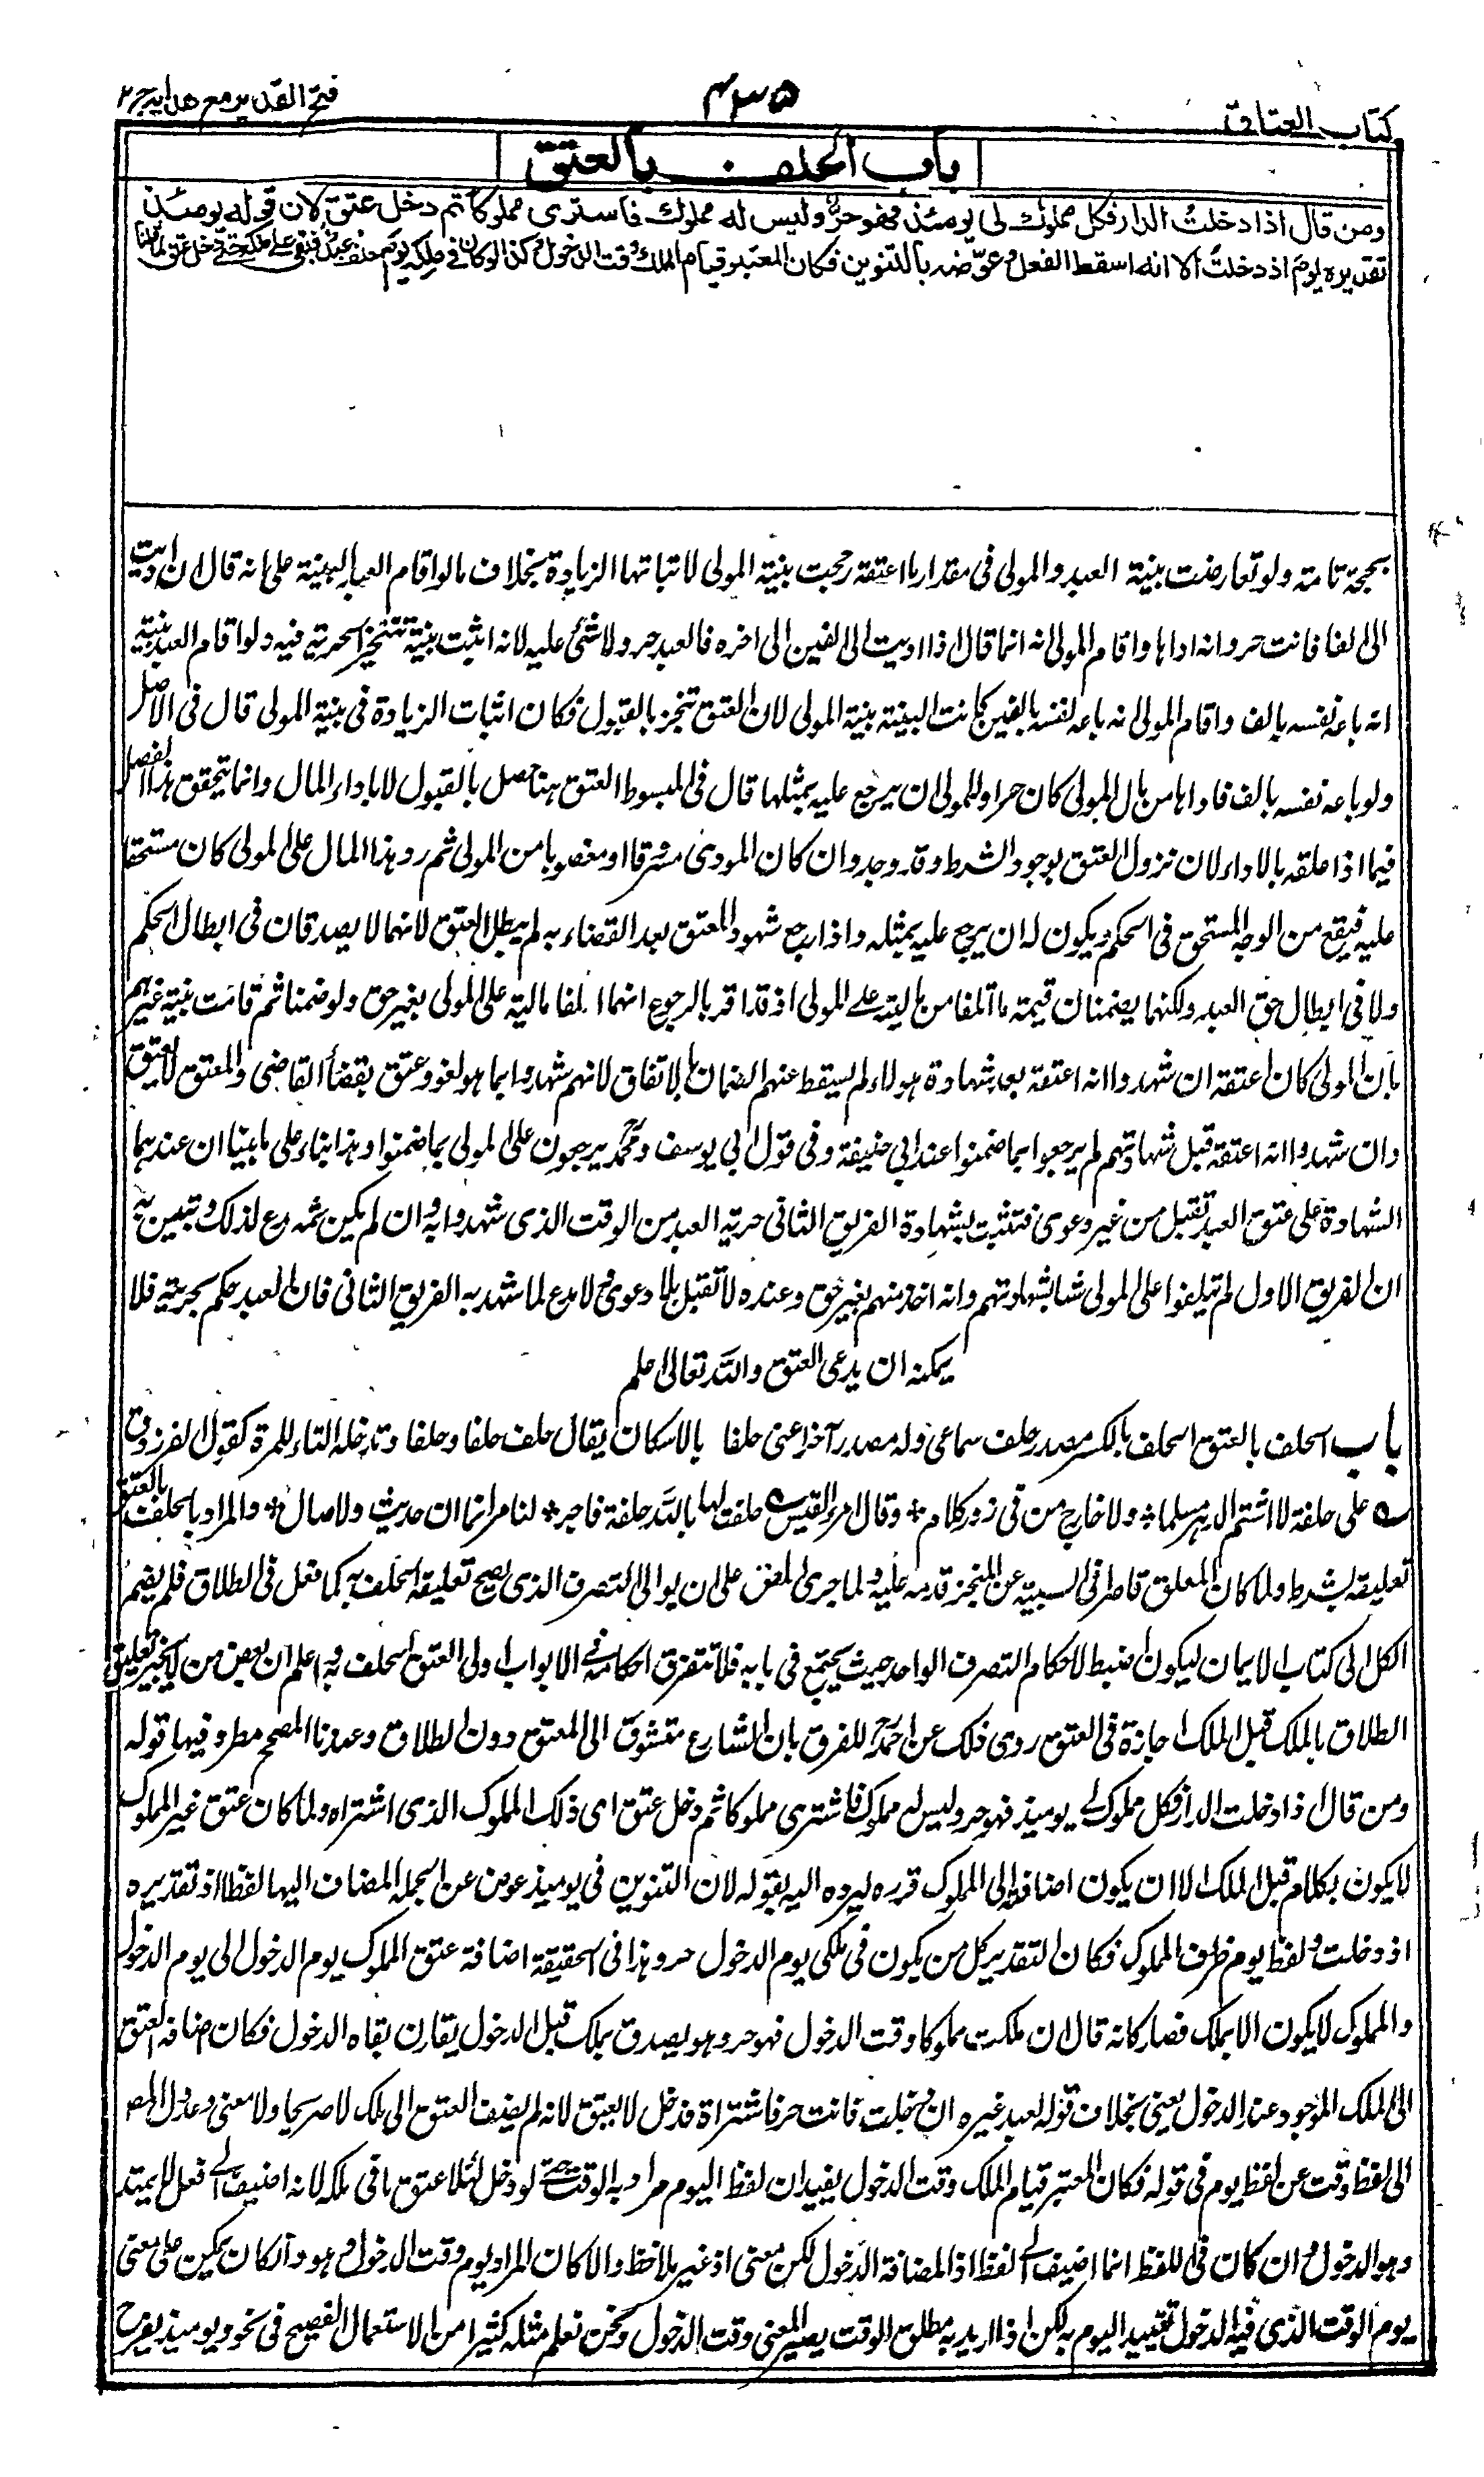 كتاب العتاق
٤٣٥
فتح القدير مع هدايه ج ٢
باب الحلف بالعتق
ومن قال اذا دخلتُ الدار فكل مملوك لى يومئذ فهو حرٌّ وليس له مملوك فاشترى مملوكا ثم دخل عتق لان قوله يومئذ
تقديره يومَ اذ دخلتُ الا انه اسقط الفعل وعوّضه بالتنوين فكان المعتبر قيام الملك وقت الدخول وكذا لو كان فى ملكه يوم حلف عبد فبقى على ملكه حتى دخل عتق لما قلنا
بحجة تامة ولو تعارضت بينة العبد والمولى فى مقدار ما اعتقه رجحت بينة المولى لاثباتها الزيادة بخلاف ما لو اقام العبد البينة على انه قال ان اديت
الى الفا فانت حر وانه اداها واقام المولى انه انما قال اذا اديت الى الفين الى اخره فالعبد حر ولا شئ عليه لانه اثبت بينة تنجيز الحرية فيه ولو اقام العبد بينة
انه باعه نفسه بالف واقام المولى انه باعه نفسه بالفين كانت البينة بينة المولى لان العتق تنجز بالقبول فكان اثبات الزيادة فى بينة المولى قال فى الاصل
ولو باعه نفسه بالف فاداها من مال المولى كان حرا وللمولى ان يرجع عليه بمثلها قال فى المبسوط العتق هنا حصل بالقبول لا باداء المال وانما يتحقق هذا الفصل
فيما اذا علقه بالاداء لان نزول العتق بوجود الشرط وقد وجد وان كان المودى مسروقا او مغصوبا من المولى ثم رد هذا المال على المولى كان مستحقا
عليه فيقع من الوجه المستحق فى الحكم ويكون له ان يرجع عليه بمثله واذا رجع شهود المعتق بعد القضاء به لم يبطل العتق لانهما لا يصدقان فى ابطال الحكم
ولا فى ابطال حق العبد ولكنهما يضمنان قيمة ما اتلفا من ماليته على المولى اذ قد اقر بالرجوع انهما اتلفا ماليته على المولى بغير حق ولو ضمنا ثم قامت بينة غيرهم
بان المولى كان اعتقه ان شهدوا انه اعتقه بعد شهادة هولاء لم يسقط عنهم الضمان بالاتفاق لانهم شهدوا بما هو لغو وعتق بقضاء القاضى والمعتق لا يعتق
وان شهدوا انه اعتقه قبل شهادتهم لم يرجعوا بما ضمنوا عند ابي حنيفة وفى قول ابي يوسف ومحمد يرجعون على المولى بما ضمنوا وهذا بناء على ما بينا ان عندهما
الشهادة على عتق العبد تقبل من غير دعوى فتثبت بشهادة الفريق الثانى حرية العبد من الوقت الذى شهدوا به وان لم يكن ثمه مدع لذلك وتبين به
ان الفريق الاول لم يتلفوا على المولى شيا بشهادتهم وانه اخذ منهم بغير حق وعنده لا تقبل بلا دعوى ولا مدع لما شهد به الفريق الثانى فان العبد حكم بحريته فلا
يمكنه ان يدعى العتق والله تعالى اعلم
باب الحلف بالعتق الحلف بالكسر مصدر حلف سماعى وله مصدر آخر اعنى حلفا بالاسكان يقال حلف حلفا وحلفا وتدخله التاء للمرة كقول الفرزدق
على حلفة لا اشتم الدهر مسلما * ولا خارج من فى زور كلام * وقال امرء القيس حلفت لها بالله حلفة فاجر * لناموا فما ان حديث ولا صال * والمراد بالحلف بالعتق
تعليقه بشرط ولما كان المعلق قاصرا فى السببية عن المنجز قدمه عليه ولما جرى المص على ان يوالى التصرف الذى يصح تعليقه الحلف به كما فعل فى الطلاق فلم يضم
الكل الى كتاب الايمان ليكون اضبط لاحكام التصرف الواحد حيث يجتمع فى بابه فلا تتفرق احكامه فى الابواب اولى العتق الحلف به واعلم ان بعض من لا يجيز تعليق
الطلاق بالملك قبل الملك اجازه فى العتق روى ذلك عن احمد للفرق بان الشارع متشوق الى العتق دون الطلاق وعندنا المصحح مطرد فيها قوله
ومن قال اذا دخلت الدار فكل مملوك لى يوميذ فهو حر وليس له مملوك فاشترى مملوكا ثم دخل عتق اى ذلك المملوك الذى اشتراه ولما كان عتق غير المملوك
لا يكون بكلام قبل الملك الا ان يكون اضافة الى المملوك قرره ليرده اليه بقوله لان التنوين فى يوميذ عوض عن الجملة المضاف اليها لفظا اذ تقديره
اذ دخلت ولفظ يوم ظرف المملوك فكان التقدير كل من يكون فى ملكى يوم الدخول حر وهذا فى الحقيقة اضافة عتق المملوك يوم الدخول الى يوم الدخول
والمملوك لا يكون الا بملك فصار كانه قال ان ملكت مملوكا وقت الدخول فهو حر وهو يصدق بملك قبل الدخول يقارن بقاه الدخول فكان اضافة العتق
الى الملك الموجود عند الدخول يعنى بخلاف قوله لعبد غيره ان دخلت فانت حر فاشتراه فدخل لا يعتق لانه لم يضف العتق الى ملك لا صريحا ولا معنى وعدول المص
الى لفظ وقت عن لفظ يوم فى قوله فكان المعتبر قيام الملك وقت الدخول يفيد ان لفظ اليوم مراد به الوقت حتى لو دخل ليلا عتق ما فى ملكه لانه اضيف الى فعل لا يمتد
وهو الدخول وان كان فى اللفظ انما اضيف الى لفظ اذ المضافة للدخول لكن معنى اذ غير ملاحظ والا كان المراد يوم وقت الدخول وهو وان كان يمكن على معنى
يوم الوقت الذى فيه الدخول تقييدا لليوم به لكن اذا اريد به مطلق الوقت يصير المعنى وقت وقت الدخول ونحن نعلم مثله كثيرا من الاستعمال الفصيح فى نحو ويوميذ يفرح